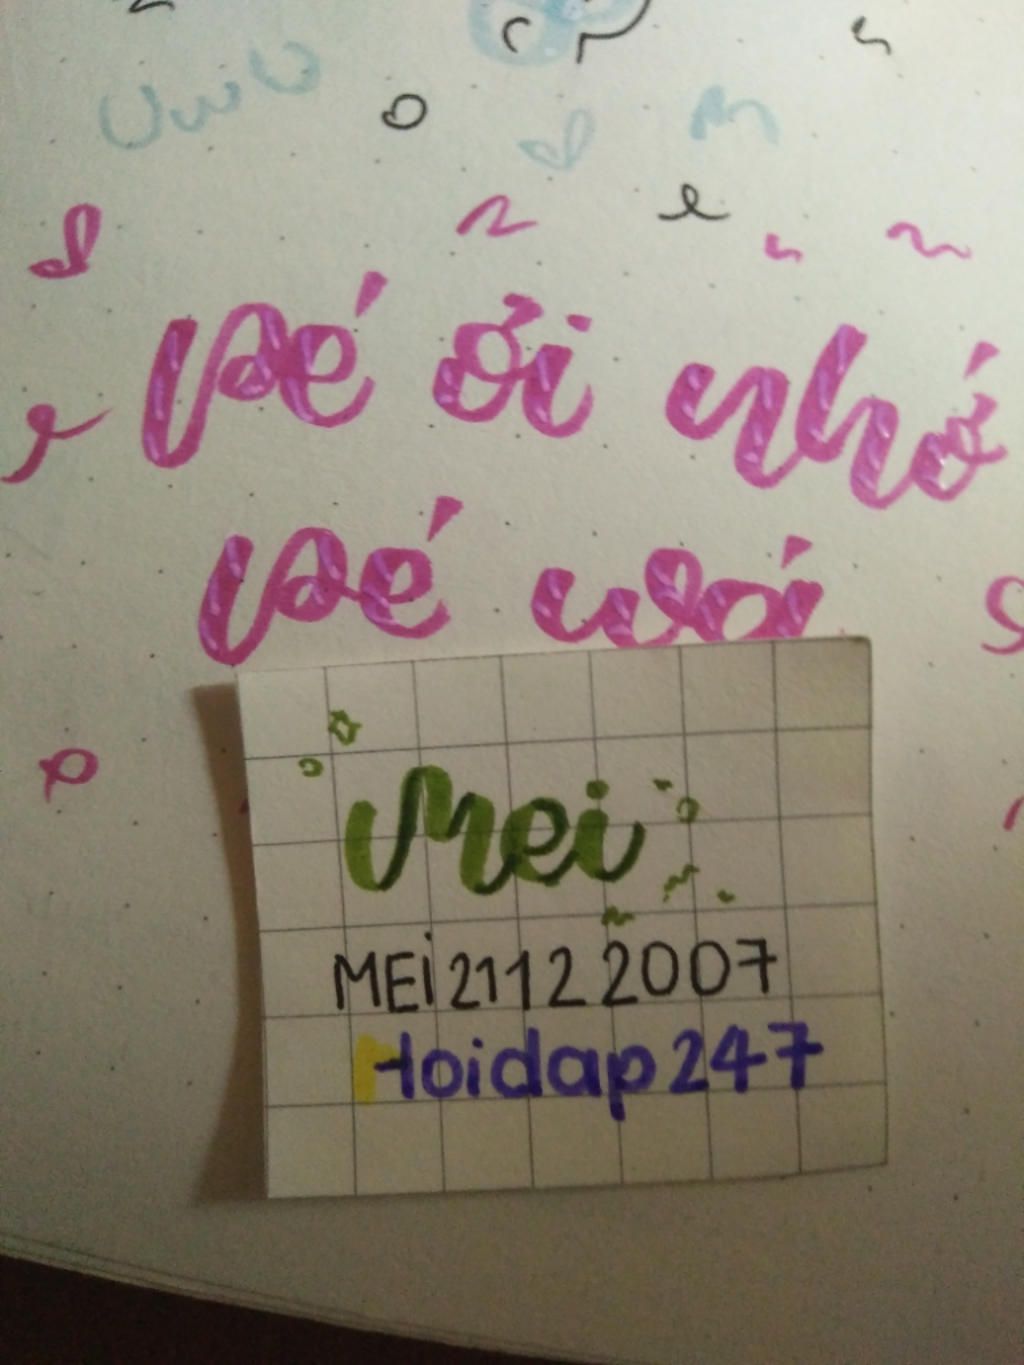 UwU
Bé ơi nhớ
Bé với
Mei
MEi21122007
Hoidap247